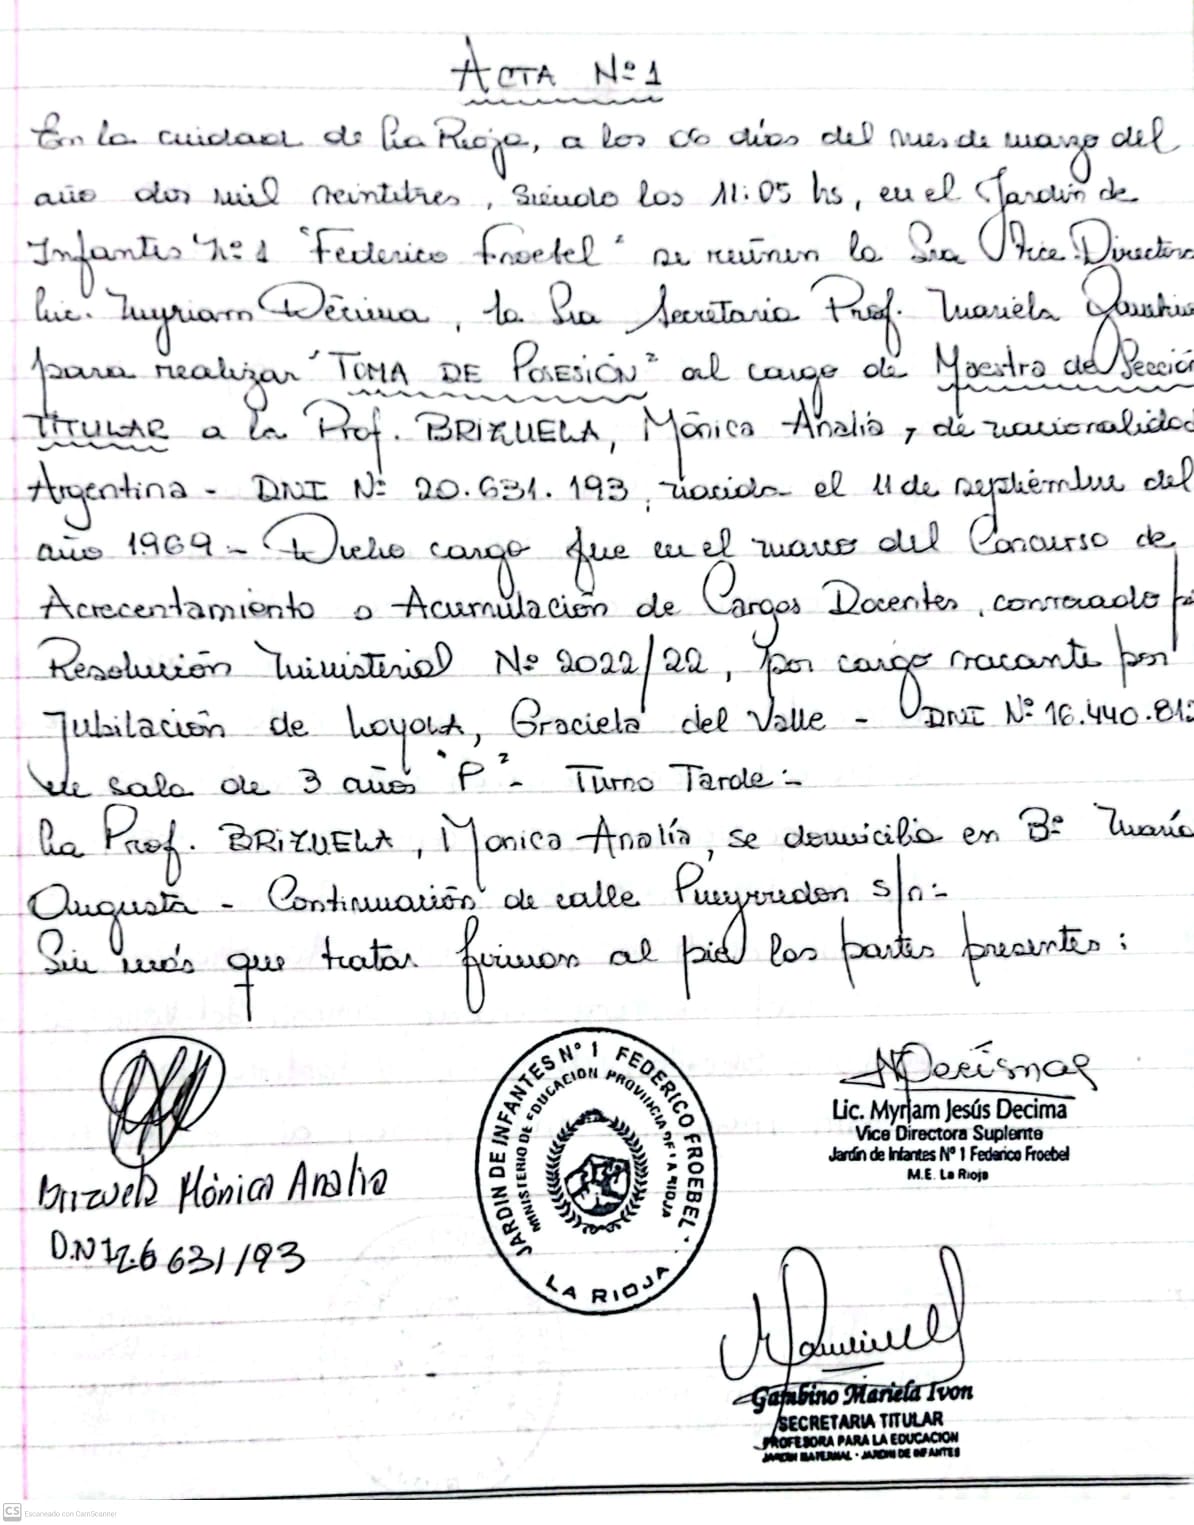 ACTA Nº 1
En la cuidad de La Rioja, a los 06 días del mes de marzo del
año dos mil veintitres, siendo las 11:05 hs, en el Jardín de
Infantes Nº 1 "Federico Froebel" se reúnen la Sra Vice Directora
Lic. Myriam Décima, la Sra Secretaria Prof. Mariela
para realizar "TOMA DE POSESIÓN" al cargo de Maestra de Sección
TITULAR a la Prof. BRIZUELA, Mónica Analía, de nacionalidad
Argentina - DNI Nº 20.631.193, nacida el 11 de septiembre del
año 1969.- Dicho cargo fue en el marco del Concurso de
Acrecentamiento o Acumulación de Cargos Docentes, convocado
Resolución Ministerial Nº 2022/22, por cargo vacante por
Jubilación de LOYOLA, Graciela del Valle - DNI Nº 16.440.812
de sala de 3 años "P" - Turno Tarde:-
La Prof. BRIZUELA, Monica Analía, se domicilia en Bº María
Augusta - Continuación de calle Pueyrredon s/n:-
Sin más que tratar firman al pie las partes presentes:
JARDIN DE INFANTES Nº 1 FEDERICO FROEBEL
MINISTERIO DE EDUCACION PROVINCIA DE LA RIOJA
LA RIOJA
Lic. Myrjam Jesús Decima
Vice Directora Suplente
Jardín de Infantes Nº 1 Federico Froebel
M.E. La Rioja
Brizuela Mónica Analia
Gambino Mariela Ivon
SECRETARIA TITULAR
PROFESORA PARA LA EDUCACION
JARDIN MATERNAL - JARDIN DE INFANTES
CS Escaneado con CamScanner